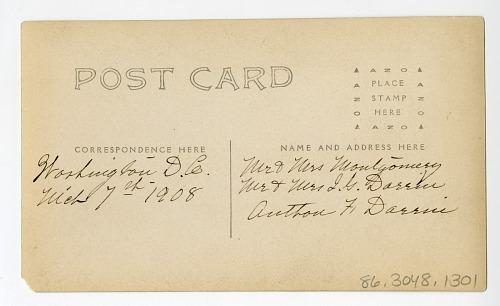 POST CARD
AZO
PLACE
STAMP
HERE
AZO
CORRESPONDENCE HERE
Washington D.C.
Mch 7th 1908
NAME AND ADDRESS HERE
Mr & Mrs Montgomery
Mr & Mrs J. G. Darrin
F. Darrin
86.3048.1301